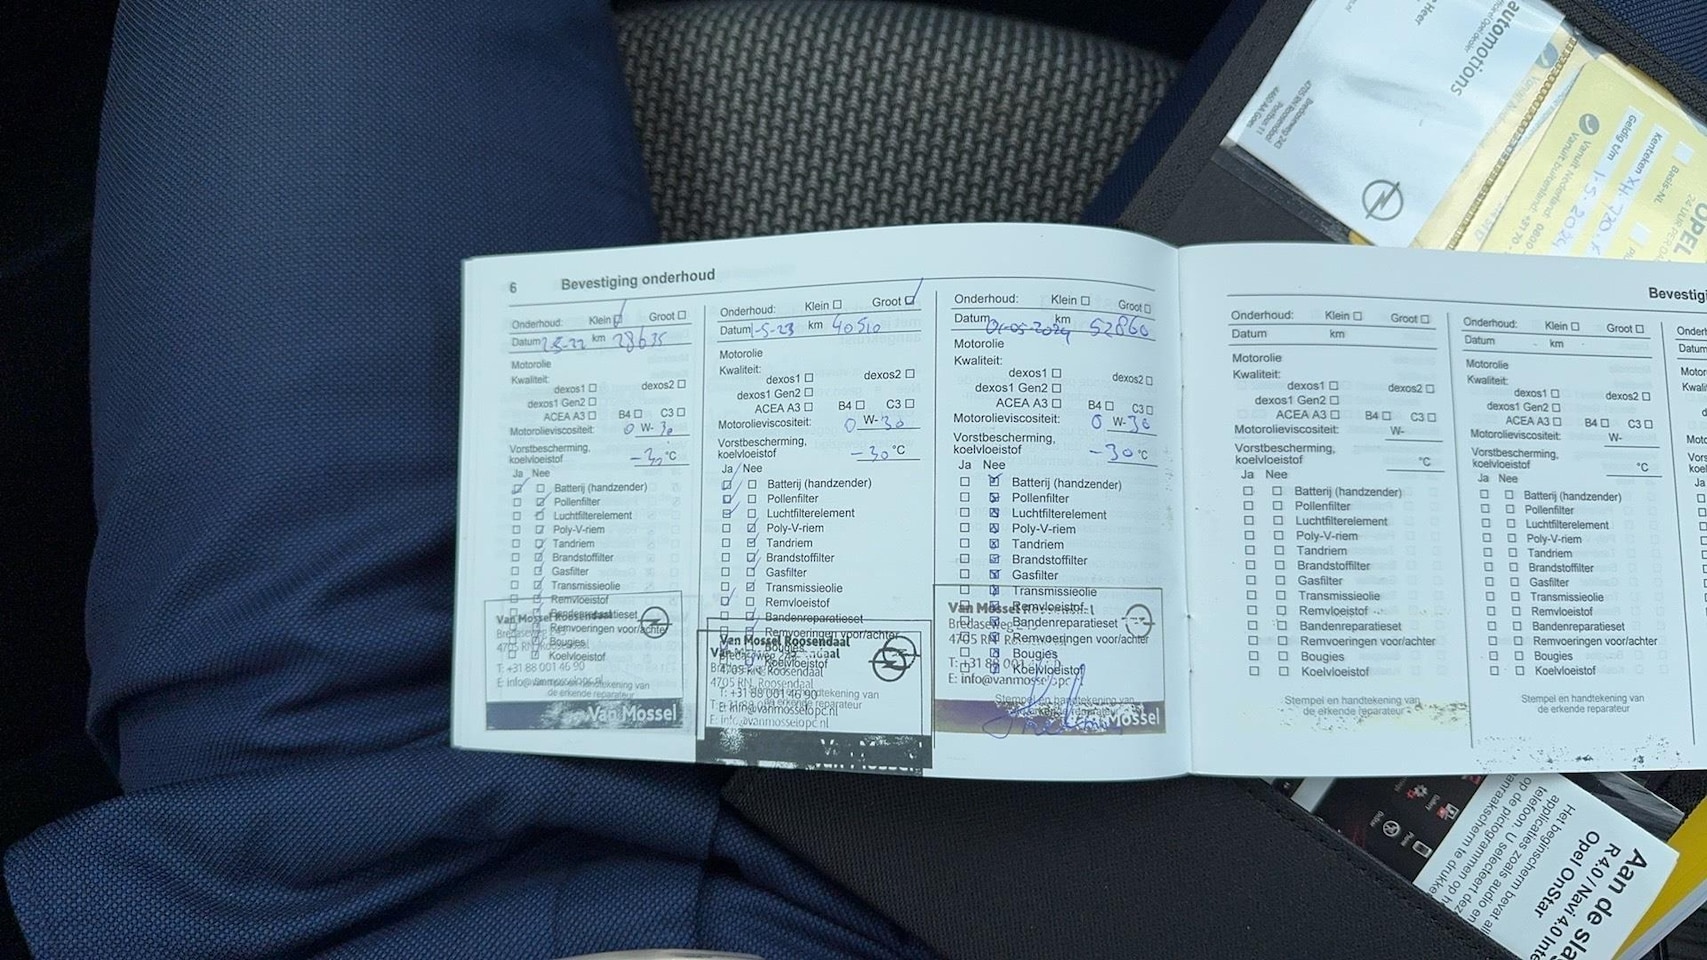 6 Bevestiging onderhoud
Onderhoud: Klein ☐ Groot ☐
Datum 2-5-22 km 28635
Motorolie
Kwaliteit:
dexos1 ☐ dexos2 ☐
dexos1 Gen2 ☐
ACEA A3 ☐ B4 ☐ C3 ☐
Motorolieviscositeit: 0 W- 30
Vorstbescherming,
koelvloeistof -30 °C
Ja Nee
Batterij (handzender)
Pollenfilter
Luchtfilterelement
Poly-V-riem
Tandriem
Brandstoffilter
Gasfilter
Transmissieolie
Remvloeistof
Bandenreparatieset
Remvoeringen voor/achter
Bougies
Koelvloeistof
Van Mossel Roosendaal
T: +31 88 001 46 90
de erkende reparateur
Van Mossel
Onderhoud: Klein ☐ Groot ☐
Datum 1-5-23 km 40510
Motorolie
Kwaliteit:
dexos1 ☐ dexos2 ☐
dexos1 Gen2 ☐
ACEA A3 ☐ B4 ☐ C3 ☐
Motorolieviscositeit: 0 W- 30
Vorstbescherming,
koelvloeistof -30 °C
Ja Nee
Batterij (handzender)
Pollenfilter
Luchtfilterelement
Poly-V-riem
Tandriem
Brandstoffilter
Gasfilter
Transmissieolie
Remvloeistof
Bandenreparatieset
Remvoeringen voor/achter
Bougies
Koelvloeistof
Van Mossel Roosendaal
4705 RN Roosendaal
T: +31 88 001 46 90
E: info@vanmosselopc.nl
Van Mossel
Onderhoud: Klein ☐ Groot ☐
Datum 01-05-2024 km 52860
Motorolie
Kwaliteit:
dexos1 ☐ dexos2 ☐
dexos1 Gen2 ☐
ACEA A3 ☐ B4 ☐ C3 ☐
Motorolieviscositeit: 0 W- 30
Vorstbescherming,
koelvloeistof -30 °C
Ja Nee
Batterij (handzender)
Pollenfilter
Luchtfilterelement
Poly-V-riem
Tandriem
Brandstoffilter
Gasfilter
Transmissieolie
Remvloeistof
Bandenreparatieset
Remvoeringen voor/achter
Bougies
Koelvloeistof
Van Mossel
Stempel en handtekening van
Mossel
Bevestigi
Onderhoud: Klein ☐ Groot ☐
Datum km
Motorolie
Kwaliteit:
dexos1 ☐ dexos2 ☐
dexos1 Gen2 ☐
ACEA A3 ☐ B4 ☐ C3 ☐
Motorolieviscositeit: W-
Vorstbescherming,
koelvloeistof °C
Ja Nee
☐ ☐ Batterij (handzender)
☐ ☐ Pollenfilter
☐ ☐ Luchtfilterelement
☐ ☐ Poly-V-riem
☐ ☐ Tandriem
☐ ☐ Brandstoffilter
☐ ☐ Gasfilter
☐ ☐ Transmissieolie
☐ ☐ Remvloeistof
☐ ☐ Bandenreparatieset
☐ ☐ Remvoeringen voor/achter
☐ ☐ Bougies
☐ ☐ Koelvloeistof
Stempel en handtekening van
de erkende reparateur
Onderhoud: Klein ☐ Groot ☐
Datum km
Motorolie
Kwaliteit:
dexos1 ☐ dexos2 ☐
dexos1 Gen2 ☐
ACEA A3 ☐ B4 ☐ C3 ☐
Motorolieviscositeit: W-
Vorstbescherming,
koelvloeistof °C
Ja Nee
☐ ☐ Batterij (handzender)
☐ ☐ Pollenfilter
☐ ☐ Luchtfilterelement
☐ ☐ Poly-V-riem
☐ ☐ Tandriem
☐ ☐ Brandstoffilter
☐ ☐ Gasfilter
☐ ☐ Transmissieolie
☐ ☐ Remvloeistof
☐ ☐ Bandenreparatieset
☐ ☐ Remvoeringen voor/achter
☐ ☐ Bougies
☐ ☐ Koelvloeistof
Stempel en handtekening van
de erkende reparateur
automotions
Postbus 11
4460 AA Goes
OPEL
Basis-NL
Kenteken
Geldig t/m 1-5-2024
Vanuit Nederland: 0800
Vanuit buitenland: +31 70
Aan de sla
R 4.0 / Navi 4.0 Inte
Opel OnStar
Het beginscherm bevat alle
applicaties zoals audio en
telefoon. U selecteert deze
op de pictogrammen op h
anraakscherm te drukke